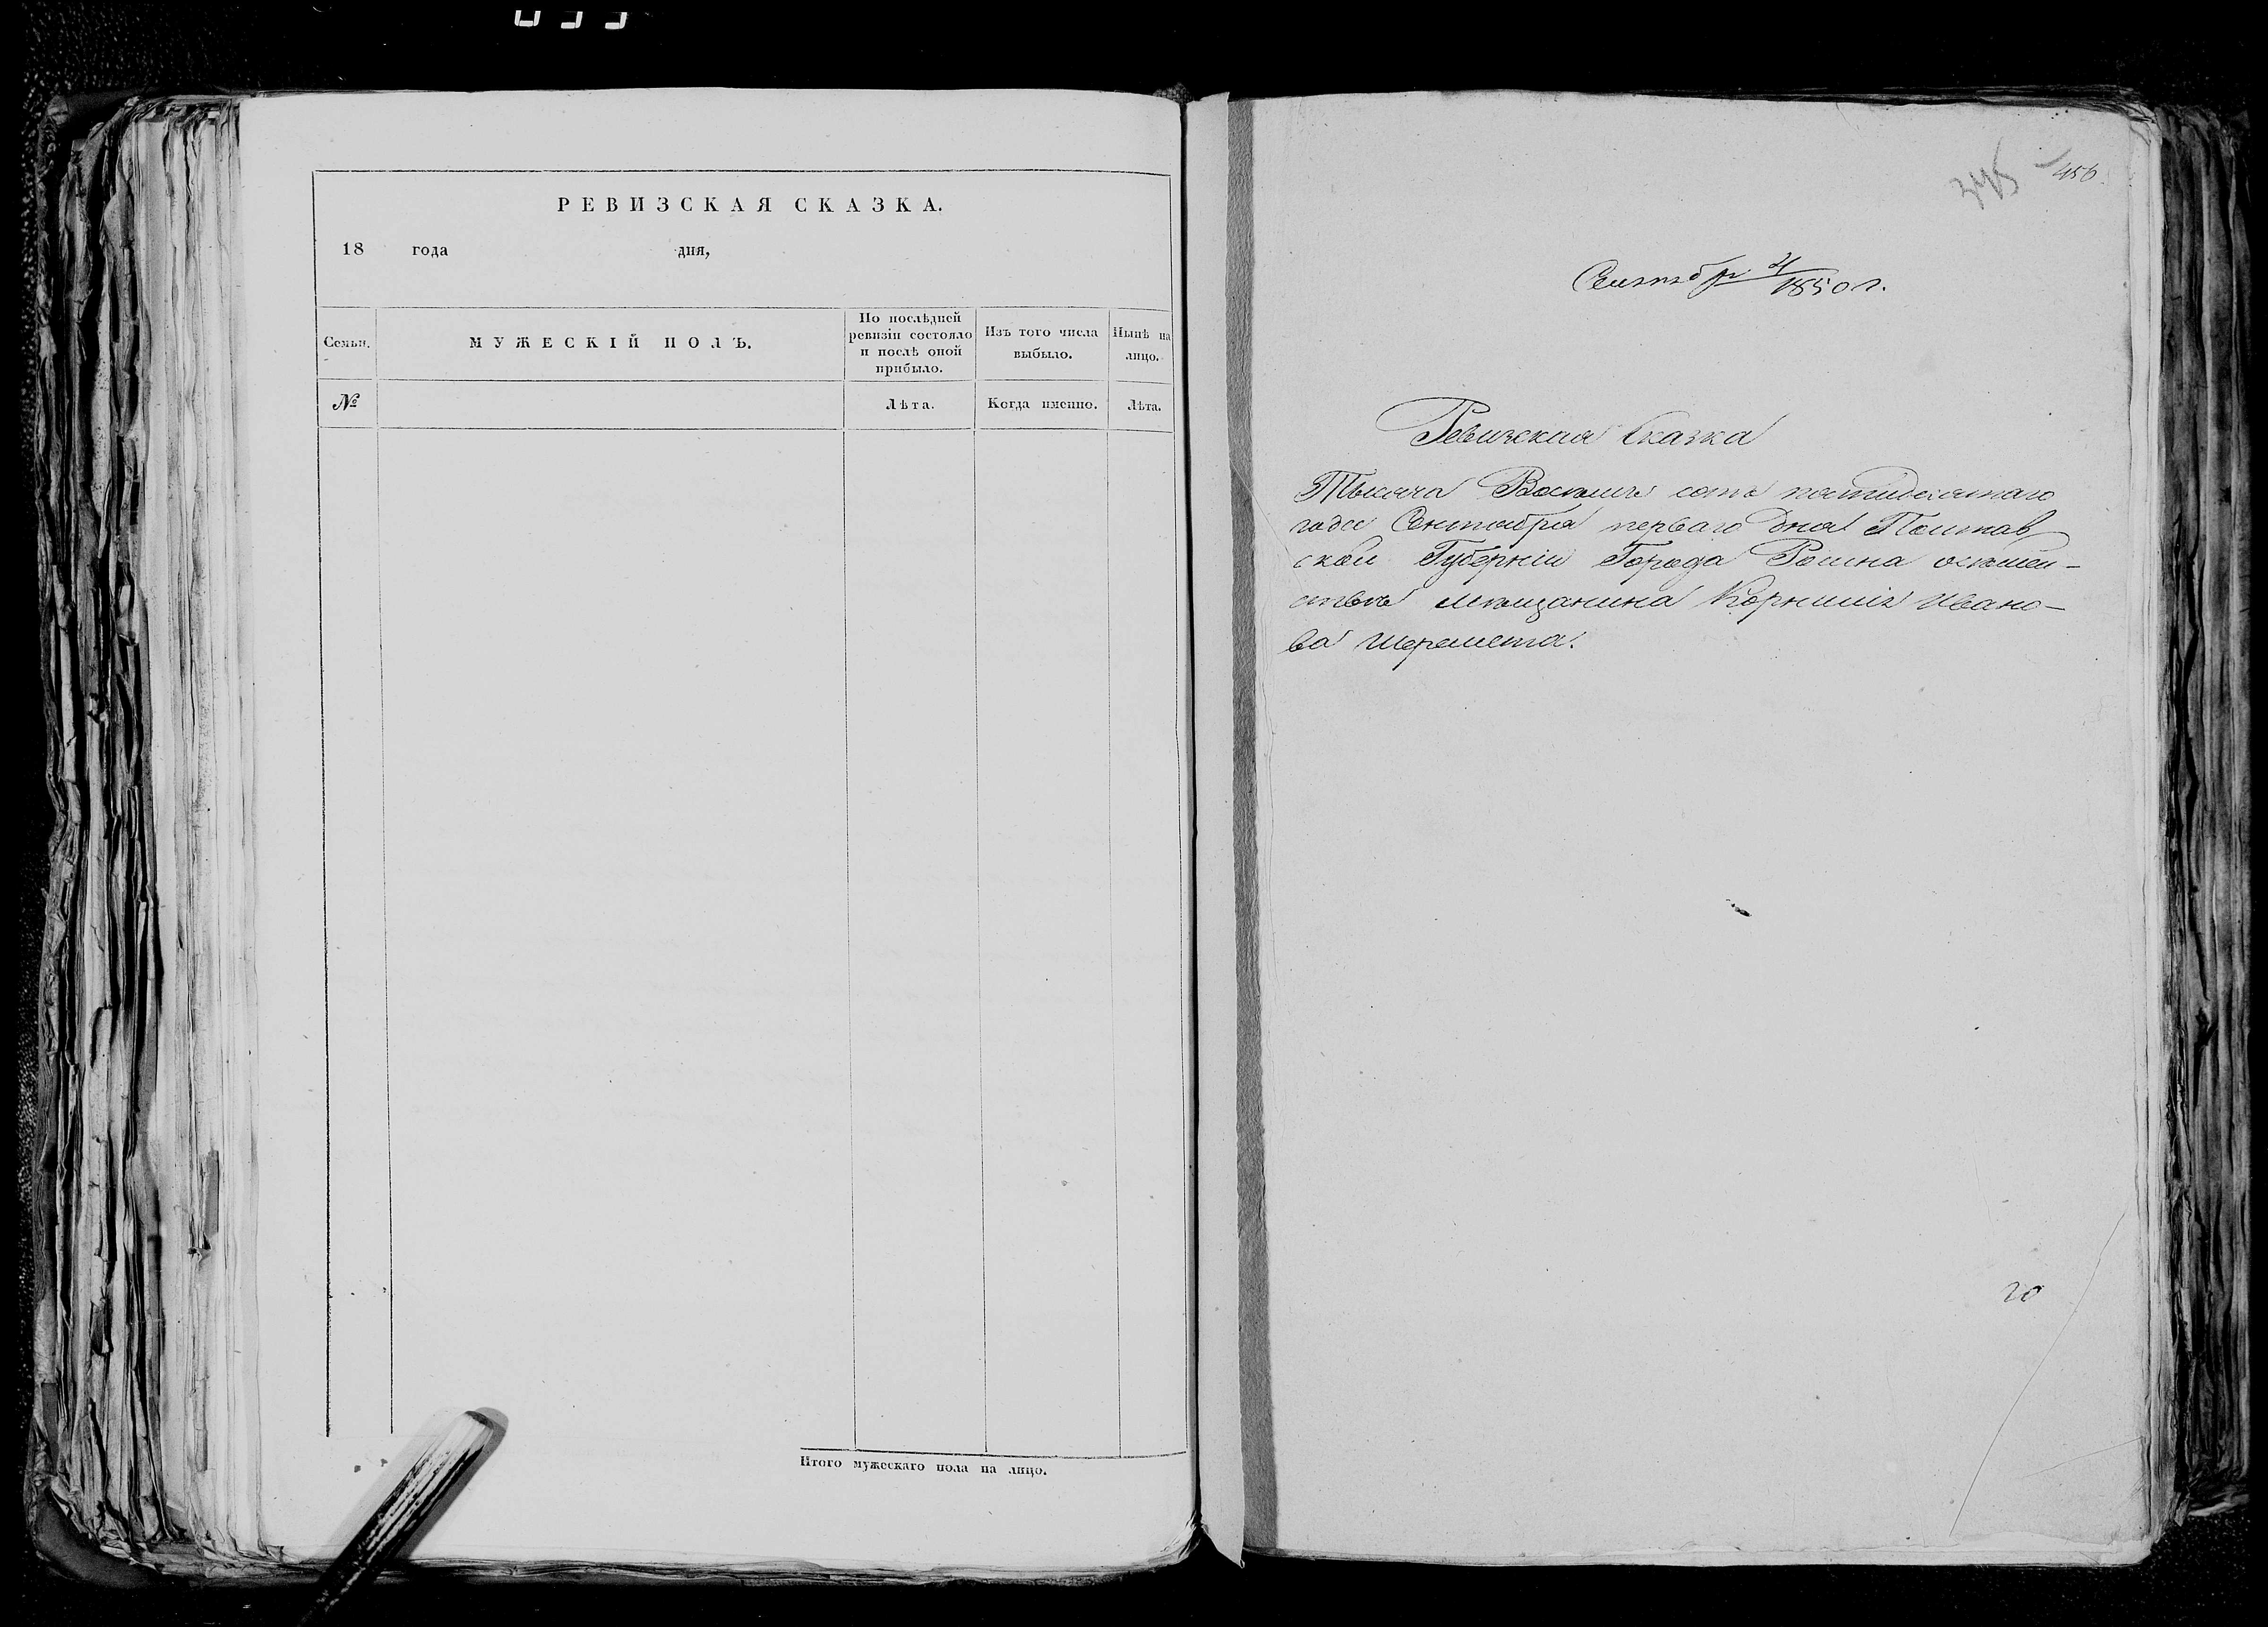 РЕВИЗСКАЯ СКАЗКА.
18 года дня,
Семьи.
МУЖЕСКІЙ ПОЛЪ.
По послѣдней ревизіи состояло и послѣ оной прибыло.
Изъ того числа выбыло.
Нынѣ на лицо.
№
Лѣта.
Когда именно.
Лѣта.
Итого мужескаго пола на лицо.
345
456.
1850 г.
Ревизская Сказка
Тысяча Восемь сотъ пятидесятаго
года Сентября перваго дня Полтав
ской Губерніи Города Ромна
мѣщанина Корнилія Ивано-
ва Шеремета.
20